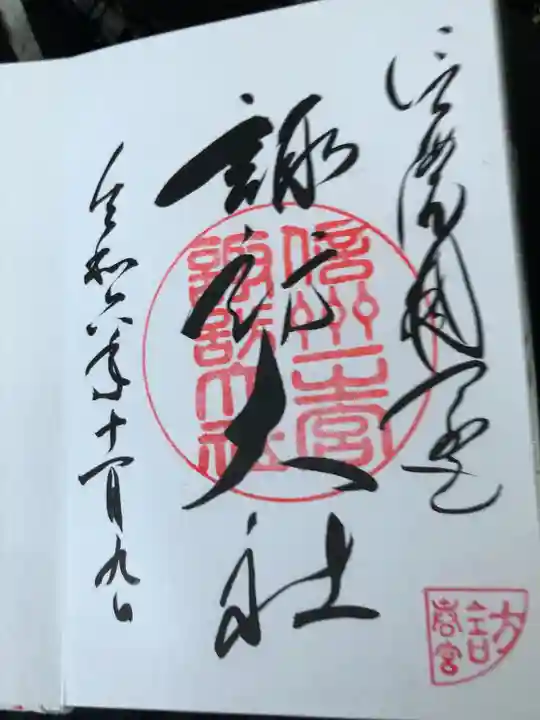 信濃國一之宮
諏訪大社
信州一宮
諏訪大社
令和六年十一月九日
諏訪
春宮